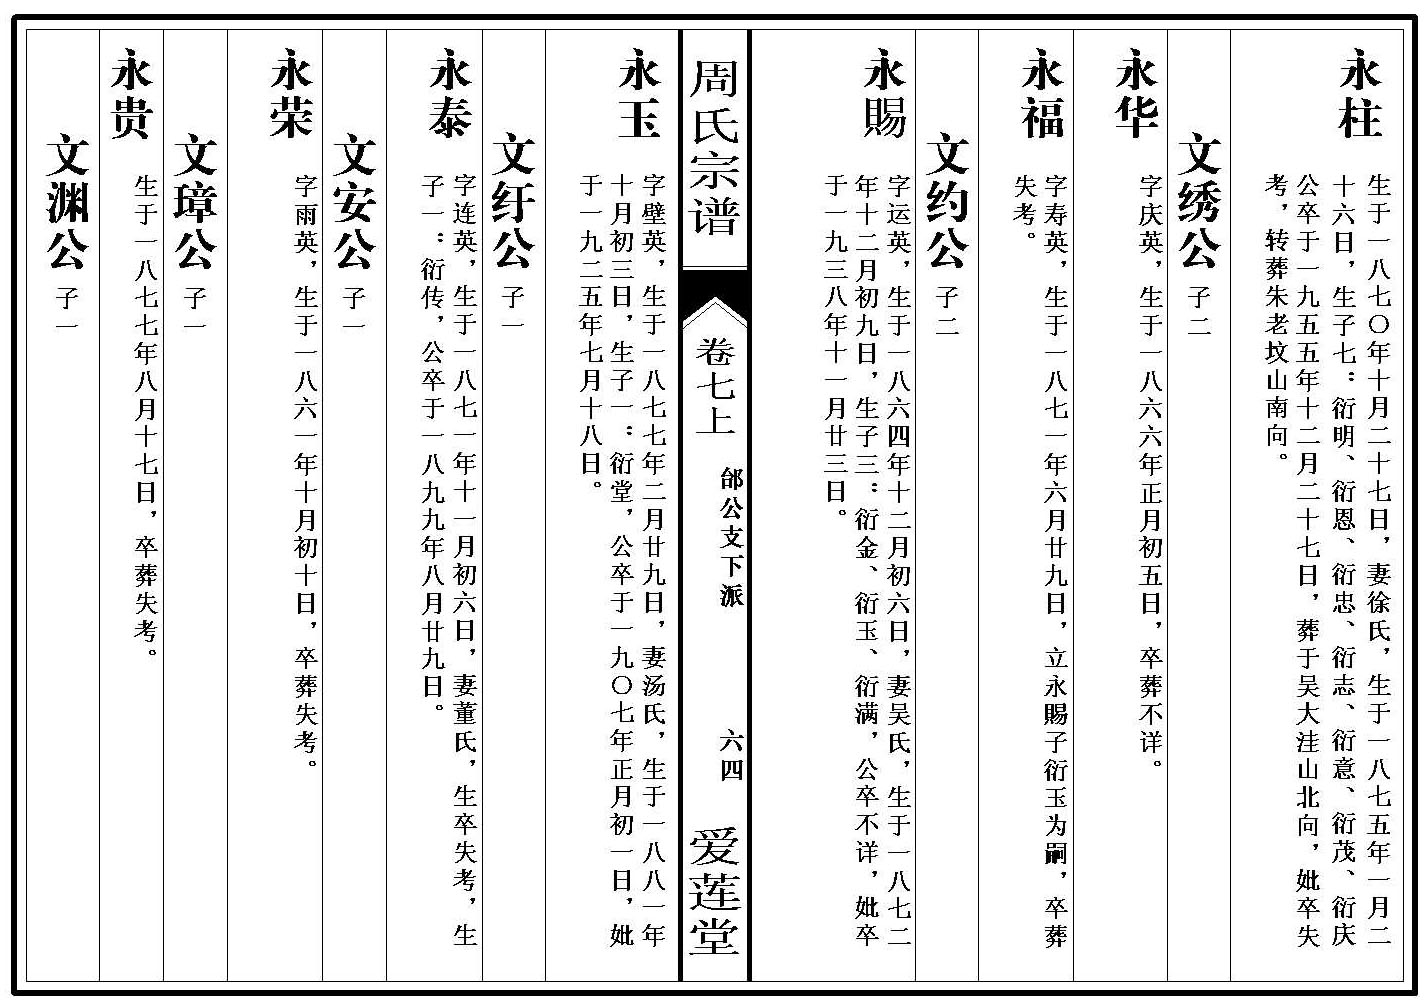 永柱
生于一八七〇年十月二十七日，妻徐氏，生于一八七五年一月二
十六日，生子七：衍明、衍恩、衍忠、衍志、衍意、衍茂、衍庆
公卒于一九五五年十二月二十七日，葬于吴大洼山北向，妣卒失
考，转葬朱老坟山南向。
文绣公 子二
永华
字庆英，生于一八六六年正月初五日，卒葬不详。
永福
字寿英，生于一八七一年六月廿九日，立永賜子衍玉为嗣，卒葬
失考。
文约公 子二
永賜
字运英，生于一八六四年十二月初六日，妻吴氏，生于一八七二
年十二月初九日，生子三：衍金、衍玉、衍满，公卒不详，妣卒
于一九三八年十一月廿三日。
周氏宗谱
卷七上
邰公支下派
六四
爱莲堂
永玉
字壁英，生于一八七七年二月廿九日，妻汤氏，生于一八八一年
十月初三日，生子一：衍堂，公卒于一九〇七年正月初一日，妣
于一九二五年七月十八日。
文纡公 子一
永泰
字连英，生于一八七一年十一月初六日，妻董氏，生卒失考，生
子一：衍传，公卒于一八九九年八月廿九日。
文安公 子一
永荣
字雨英，生于一八六一年十月初十日，卒葬失考。
文璋公 子一
永贵
生于一八七七年八月十七日，卒葬失考。
文渊公 子一